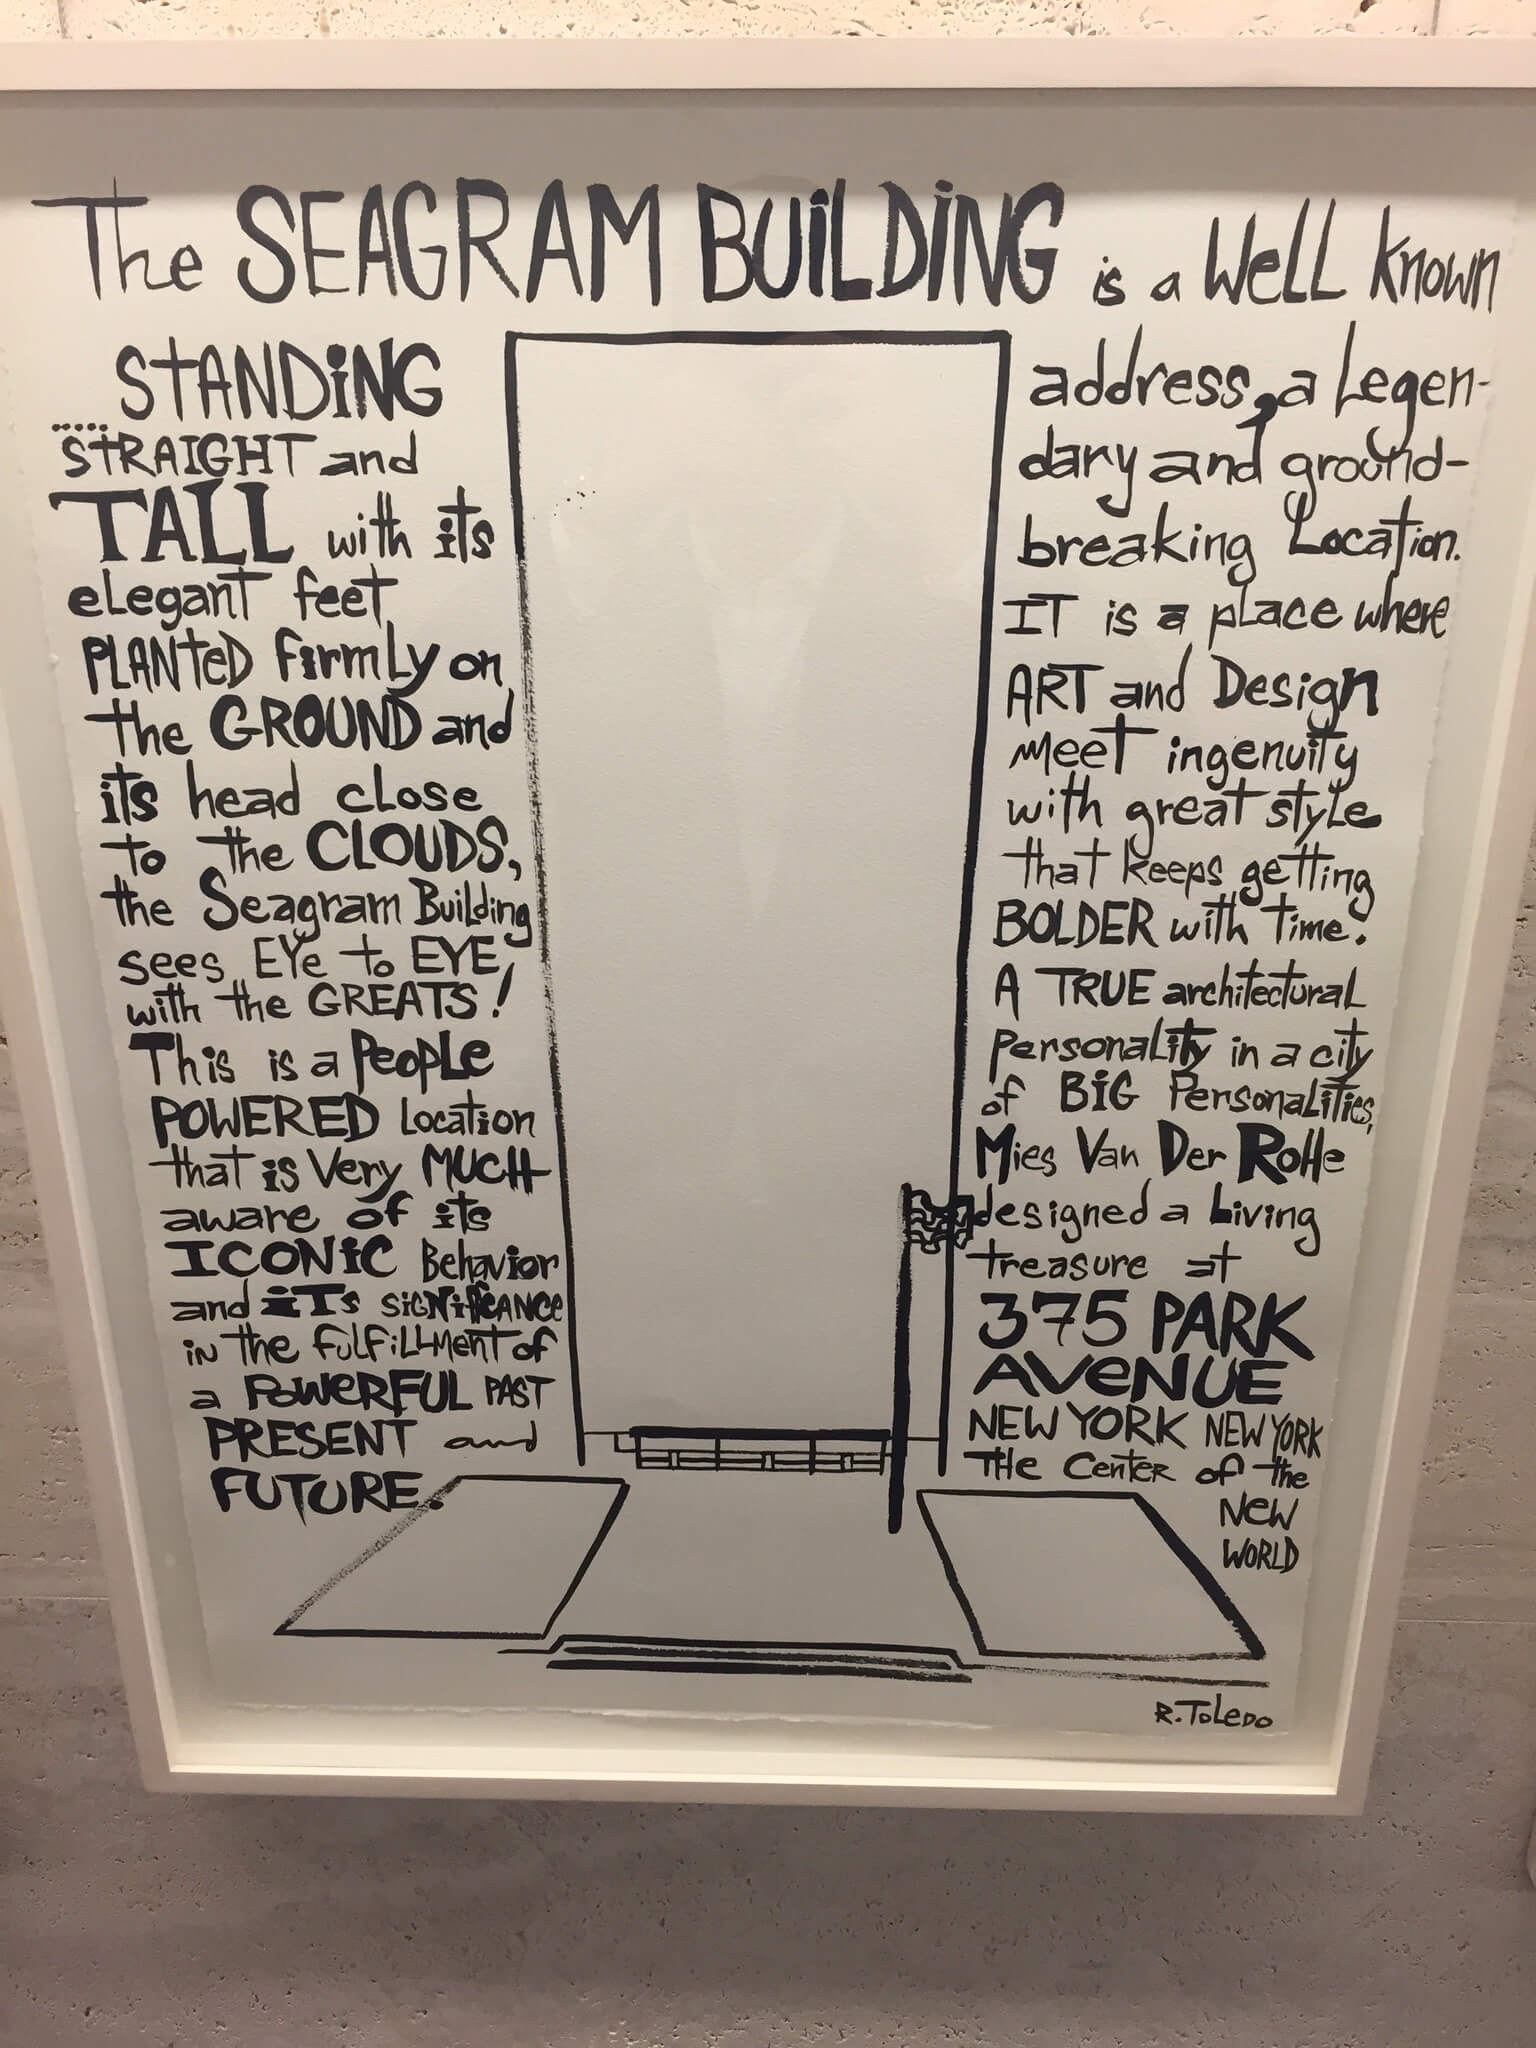 The SEAGRAM BUiLDiNG is a WeLL known
address, a Legen-
dary and ground-
breaking Location.
IT is a place where
ART and Design
meet ingenuity
with great style
that keeps getting
BOLDER with time.
A TRUE architecturaL
PersonaLity in a city
of BiG PersonaLities,
Mies Van Der RoHe
designed a Living
treasure at
375 PARK
AVeNUE
NEW YORK NEW YORK
THe CenteR of the
NeW
WORLD
.....StANDiNG
StRAIGHT and
TALL with its
eLegant feet
PLANteD firmLy on
the GROUND and
its head cLose
to the CLOUDS,
the Seagram BuiLding
sees EYe to EYE
with the GREATS!
This is a PeopLe
POWERED Location
that is Very MUCH
aware of its
ICONiC Behavior
and iTs SiGNificANCe
iN the fuLfiLLMeNT of
a PoWeRFUL PAST
PRESENT and
FUTURE.
R. ToLeDo